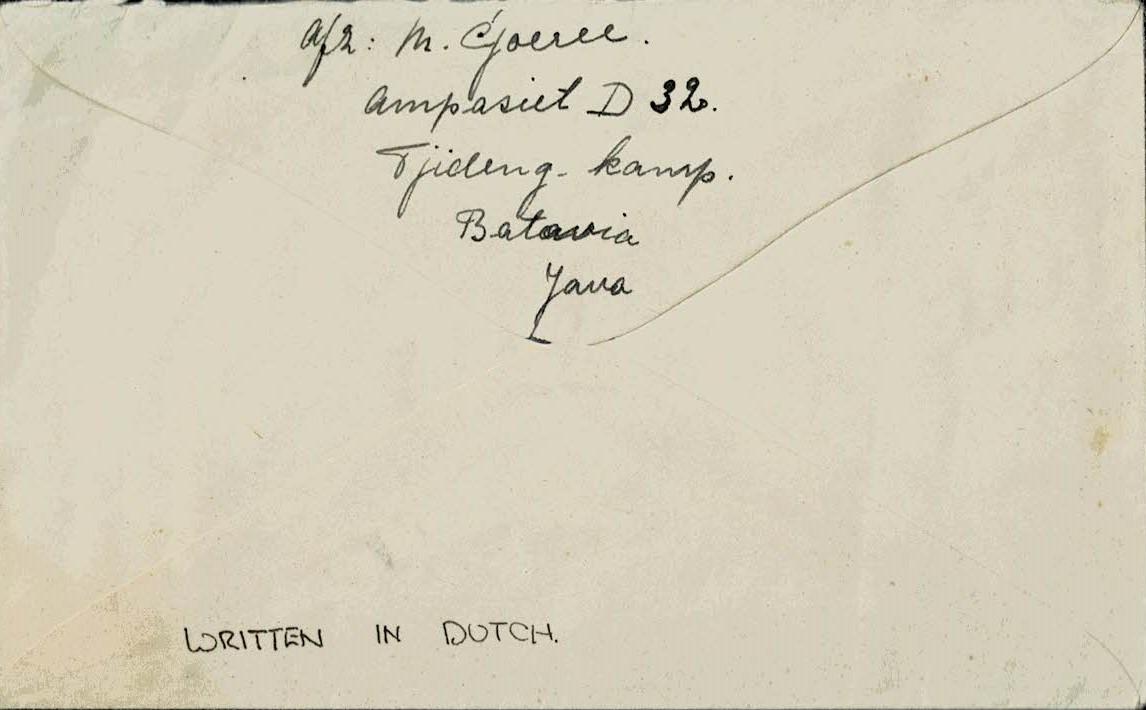 Afz: M. Gjoeree.
Ampasiet D 32.
Tjideng-kamp.
Batavia
Java
WRITTEN IN DUTCH.